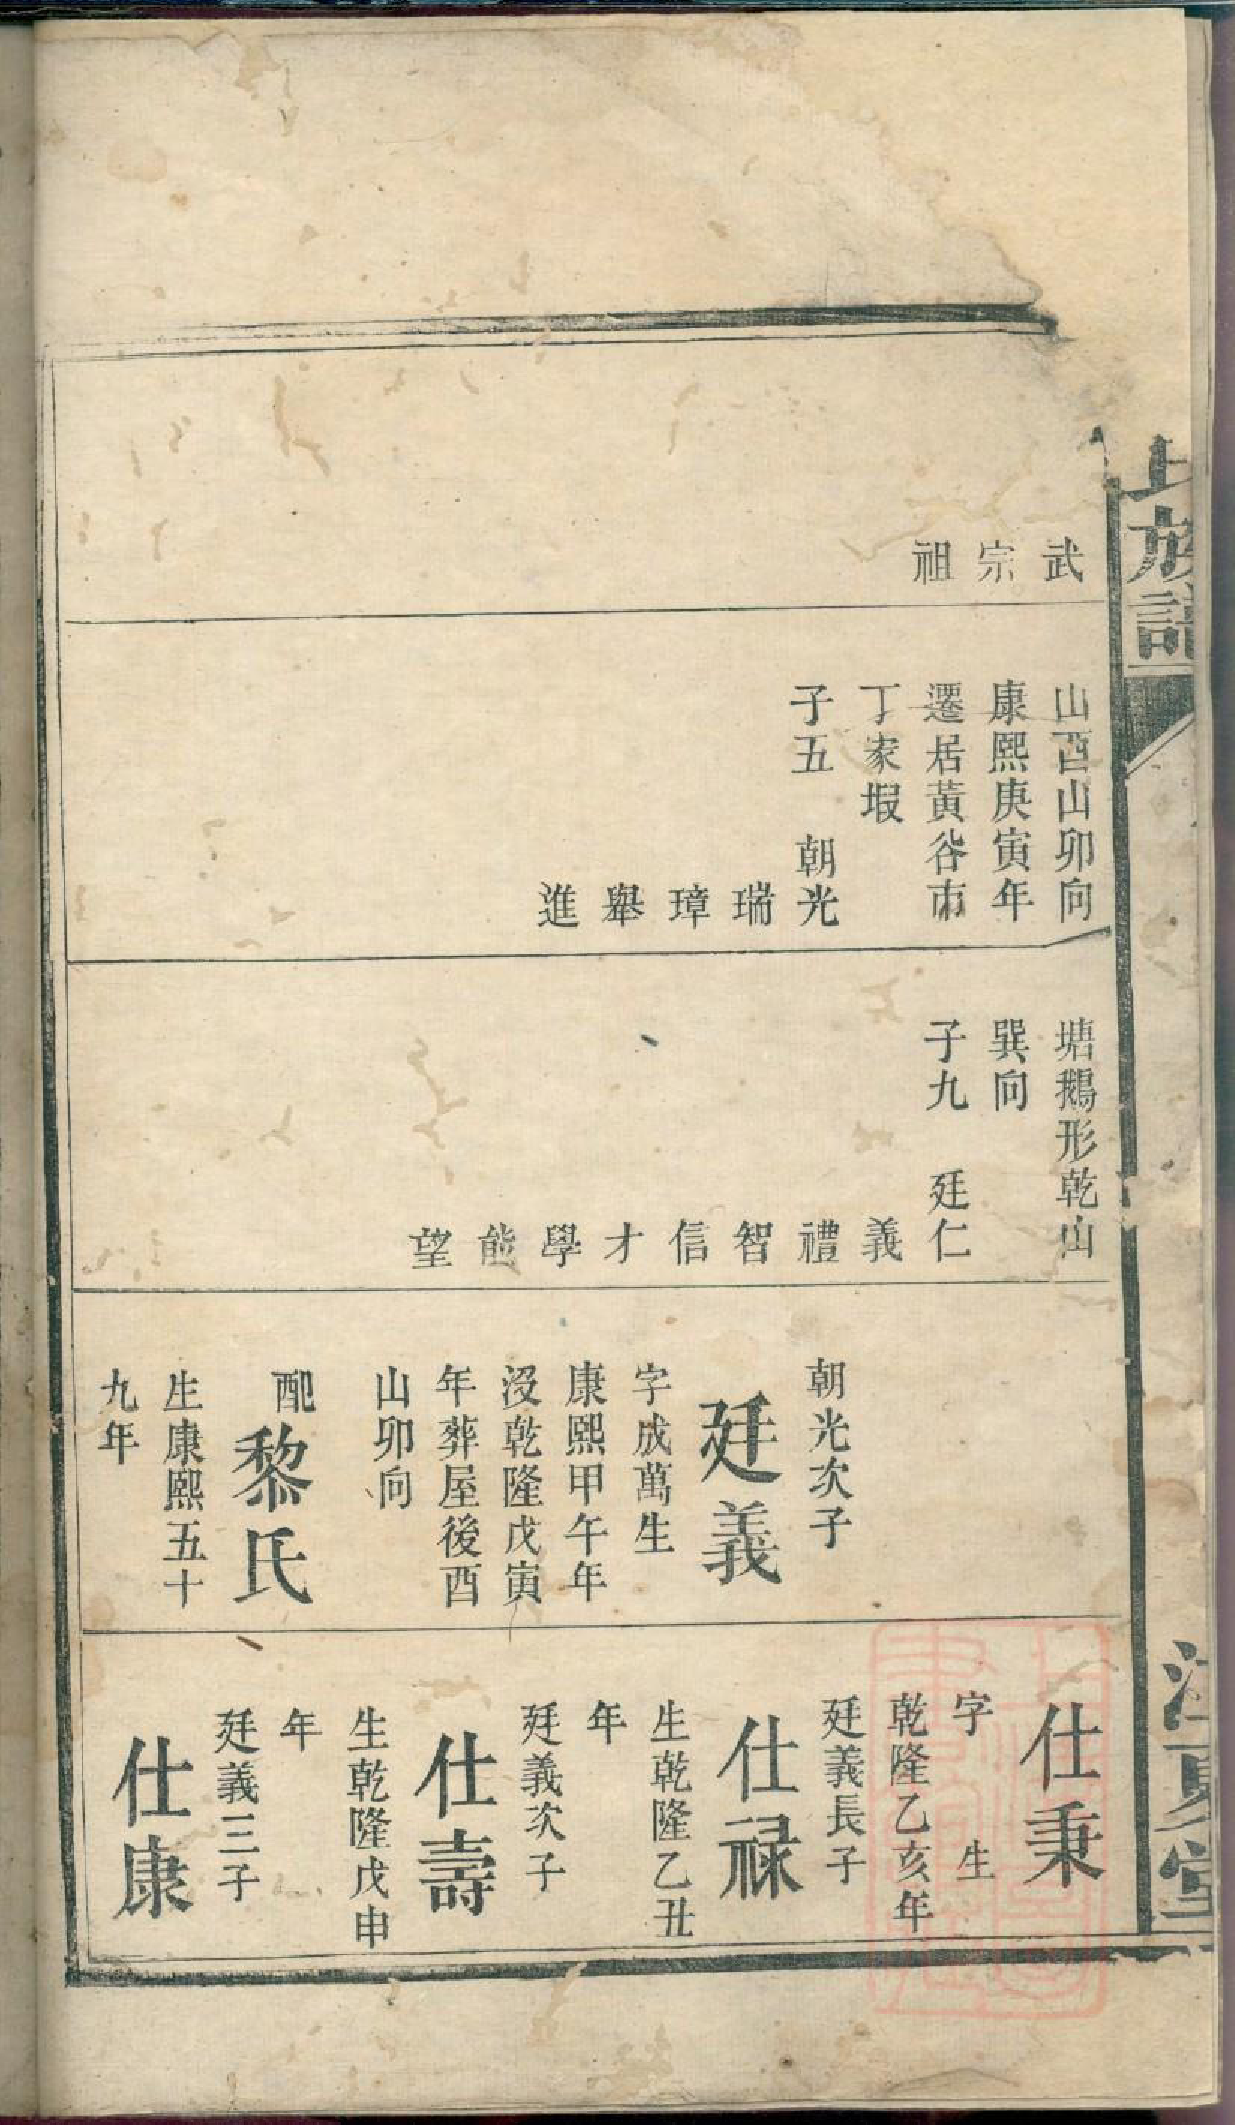 氏族譜
江夏堂
武
宗
祖
山酉山卯向
康熙庚寅年
遷居黃谷市
丁家塅
子五　朝光
瑞
璋
舉
進
塘鵝形乾山
巽向
子九　廷仁
義
禮
智
信
才
學
能
望
朝光次子
廷義
字成萬生
康熙甲午年
沒乾隆戊寅
年葬屋後酉
山卯向
配黎氏
生康熙五十
九年
仕秉
字　生
乾隆乙亥年
廷義長子
仕祿
生乾隆乙丑
年
廷義次子
仕壽
生乾隆戊申
年
廷義三子
仕康